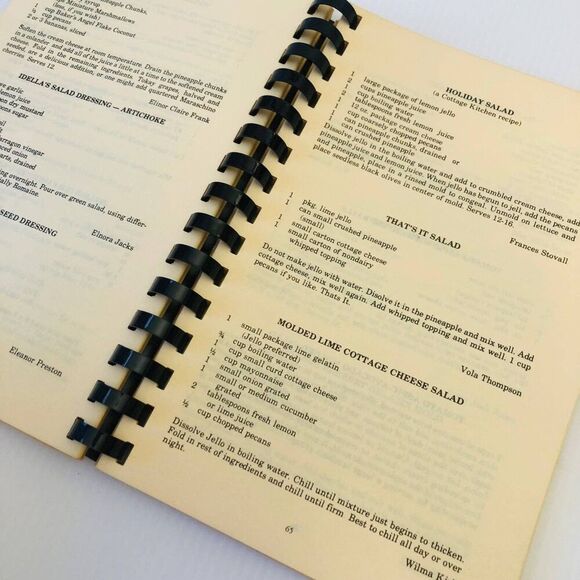 pineapple Chunks,
syrup
Miniature Marshmallows
(less, if you wish)
½ cup Baker's Angel Flake Coconut
2 or 3 bananas, sliced
Soften the cream cheese at room temperature. Drain the pineapple chunks
in a colander, and add all of the juice a little at a time to the softened cream
cheese. Fold in the remaining ingredients. Tokay grapes, halved and
seeded, are a delicious addition, or one might add quartered Maraschino
cherries. Serves 12.
Elinor Claire Frank
IDELLA'S SALAD DRESSING — ARTICHOKE
garlic
lemon juice
dry mustard
sugar
tarragon vinegar
minced onion
drained
overnight. Pour over green salad, using differ-
Romaine.
Elnora Jacks
SEED DRESSING
Eleanor Preston
HOLIDAY SALAD
(a Cottage Kitchen recipe)
1 large package of lemon jello
cups pineapple juice
boiling water
tablespoons fresh lemon juice
oz. package cream cheese
cup coarsely chopped pecans
can pineapple chunks, drained or
can crushed pineapple
Dissolve jello in the boiling water and add to crumbled cream cheese, add
pineapple juice and lemon juice. When jello has begun to jell, add the pecans
and pineapple, place in a rinsed mold to congeal. Unmold on lettuce and
place seedless black olives in center of mold. Serves 12-16.
Frances Stovall
THAT'S IT SALAD
1 pkg. lime jello
1 can small crushed pineapple
(small)
1 small carton cottage cheese
1 small carton of nondairy
whipped topping
Do not make jello with water. Disolve it in the pineapple and mix well. Add
cottage cheese, mix well again. Add whipped topping and mix well. 1 cup
pecans if you like. Thats It.
Vola Thompson
MOLDED LIME COTTAGE CHEESE SALAD
1 small package lime gelatin
(Jello preferred)
¾ cup boiling water
1 cup small curd cottage cheese
½ cup mayonnaise
1 small onion grated
1 small or medium cucumber
grated
2 tablespoons fresh lemon
or lime juice
½ cup chopped pecans
Dissolve Jello in boiling water. Chill until mixture just begins to thicken.
Fold in rest of ingredients and chill until firm Best to chill all day or over
night.
Wilma
65